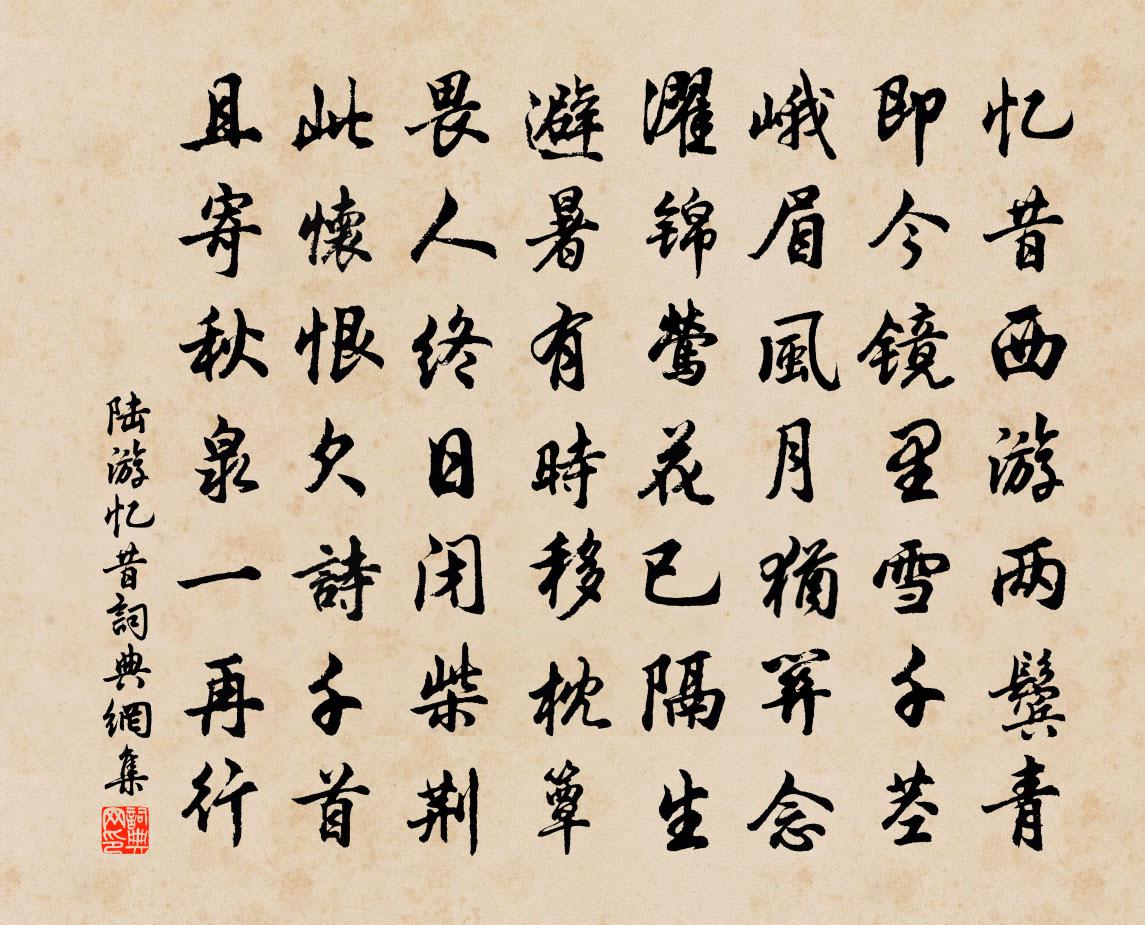 忆昔西游两鬓青
即今镜里雪千茎
峨眉風月猶関念
濯锦莺花已隔生
避暑有時移枕簟
畏人终日闭柴荆
此懷恨欠詩千首
且寄秋泉一再行
陆游忆昔詞典網集
詞典网印